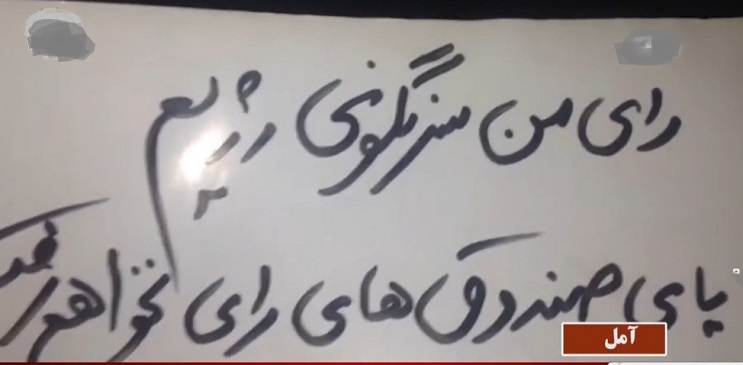 رای من سرنگونی رژیم
پای صندوق های رای نخواهم
آمل